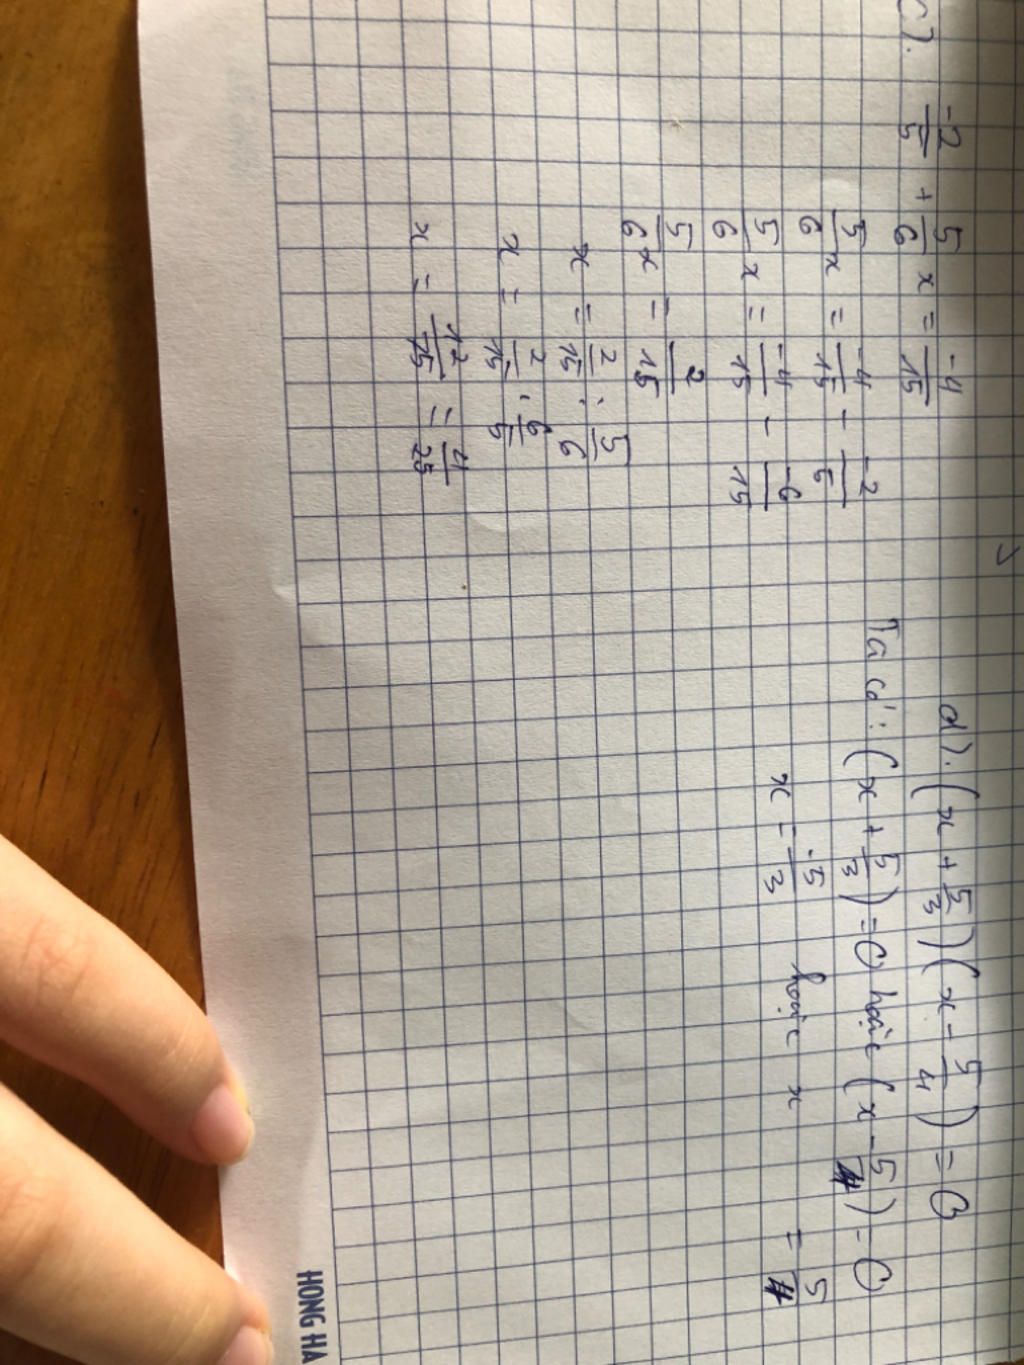 c). -2/5 + 5/6 x = -4/15
5/6 x = -4/15 - -2/5
5/6 x = -4/15 - -6/15
5/6 x = 2/15
x = 2/15 : 5/6
x = 2/15 . 6/5
x = 12/75 = 4/25
d). (x + 5/3)(x - 5/4) = 0
Ta có: (x + 5/3) = 0 hoặc (x - 5/4) = 0
x = -5/3 hoặc x = 5/4
HONG HA